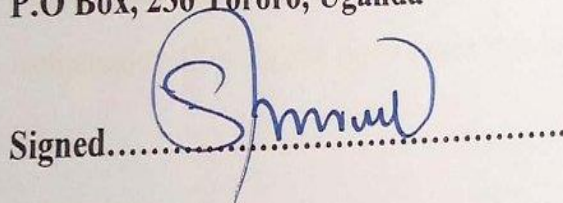 P.O Box, 256 Tororo, Uganda
Signed